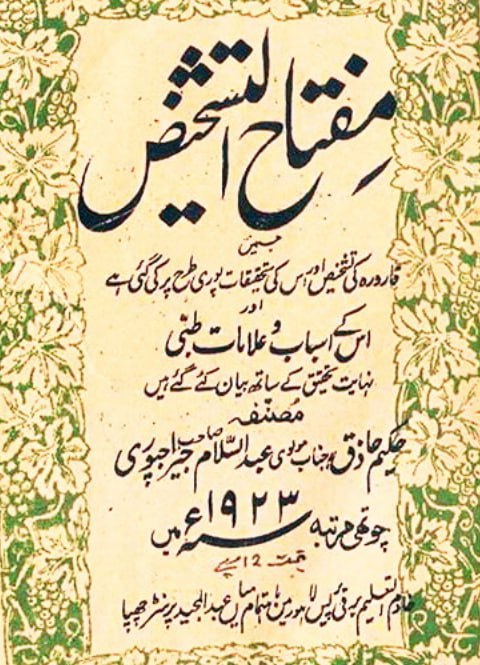 مفتاح التشخیص
جسمیں
قارورہ کی تشخیص اور اس کی تحقیقات پوری طرح پر کی گئی ہے
اور
اس کے اسباب و علامات طبّی
نہایت تحقیق کے ساتھ بیان کئے گئے ہیں
مصنفہ
حکیم حاذق جناب مولوی عبدالسّلام صاحب جیراجپوری
چوتھی مرتبہ سنہ ۱۹۲۳ء میں
قیمت 12
خادم التعلیم برقی پریس لاہور میں باہتمام میاں عبدالمجید پرنٹر چھپا